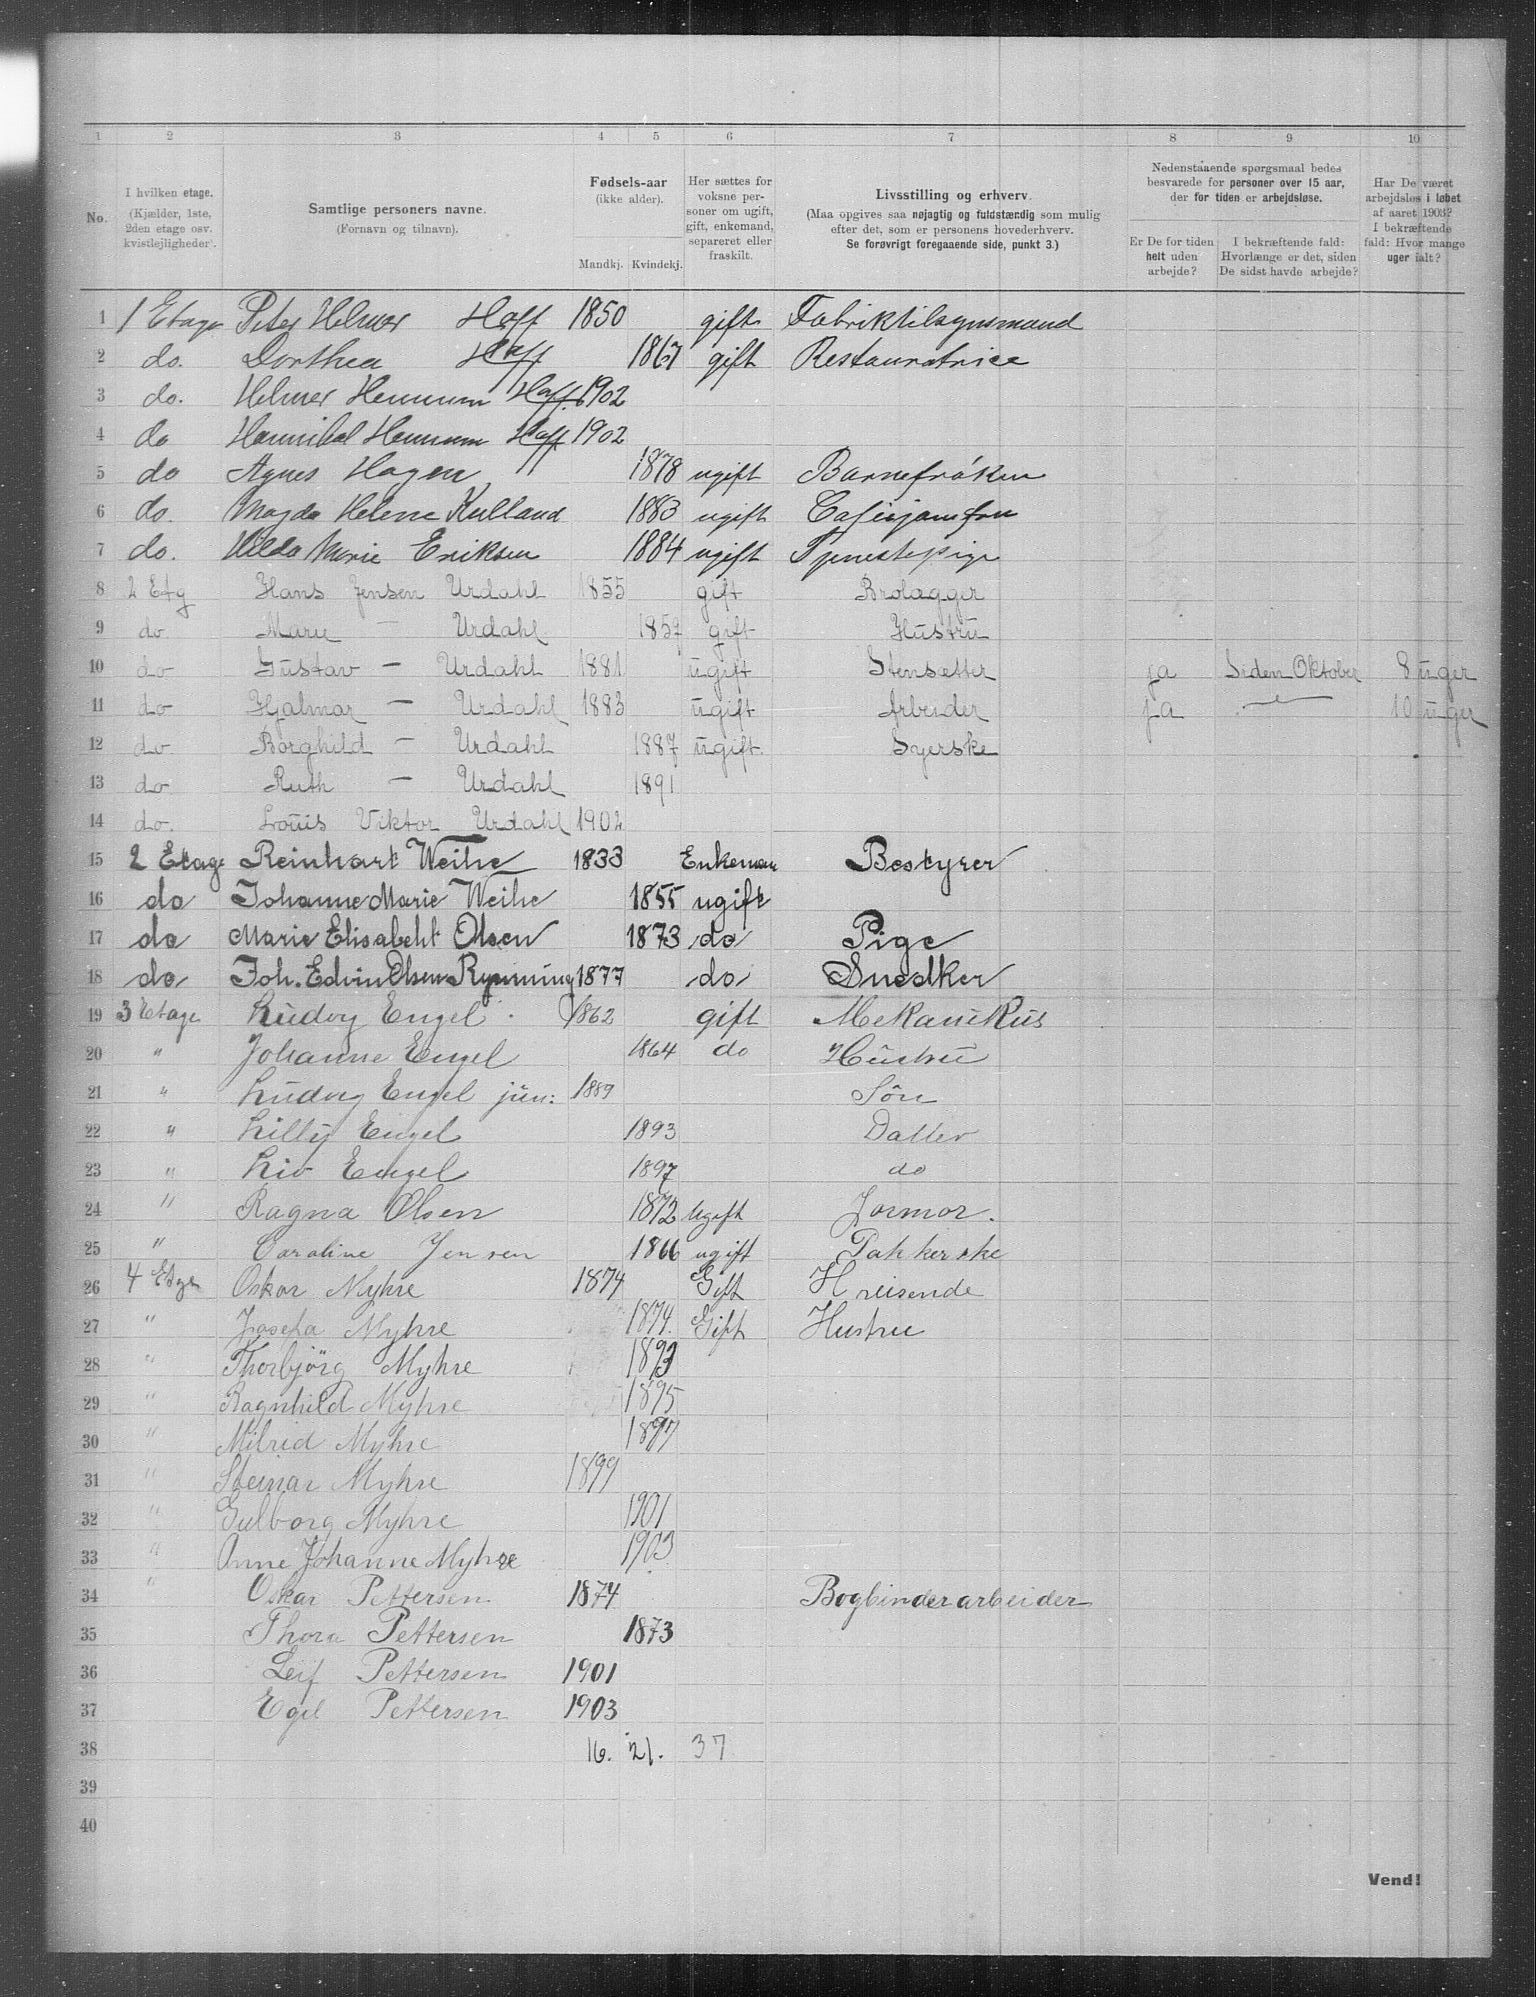 1 2 3 4 5 6 7 8 9 10
No.
I hvilken etage.
(Kjælder, 1ste,
2den etage osv.
kvistlejligheder).
Samtlige personers navne.
(Fornavn og tilnavn).
Fødsels-aar
(ikke alder).
Mandkj. Kvindekj.
Her sættes for
voksne per-
soner om ugift,
gift, enkemand,
separeret eller
fraskilt.
Livsstilling og erhverv.
(Maa opgives saa nøjagtig og fuldstændig som mulig
efter det, som er personens hovederhverv.
Se forøvrigt foregaaende side, punkt 3.)
Nedenstaaende spørgsmaal bedes
besvarede for personer over 15 aar,
der for tiden er arbejdsløse.
Er De for tiden
helt uden
arbejde?
I bekræftende fald:
Hvorlænge er det, siden
De sidst havde arbejde?
Har De været
arbejdsløs i løbet
af aaret 1903?
I bekræftende
fald: Hvor mange
uger ialt?
1 1 Etage Peter Helmer Hoff 1850 gift Fabriktilsynsmand
2 do. Dorthea Hoff 1867 gift Restauratrice
3 do. Helmer Hennum Hoff 1902
4 do Hannibal Hennum Hoff 1902
5 do Agnes Hagen 1878 ugift Barnefrøken
6 do. Magda Helene Kulland 1883 ugift
7 do. Hilda Marie Eriksen 1884 ugift Tjenestepige
8 2 Etg Hans Jensen Urdahl 1855 gift Brolægger
9 do. Marie — Urdahl 1857 gift Hustru
10 do Gustav — Urdahl 1881 ugift Stensætter ja Siden Oktober 8 uger
11 do Hjalmar — Urdahl 1883 ugift Arbeider ja — 10 uger
12 do Borghild — Urdahl 1887 ugift. Syerske
13 do Ruth — Urdahl 1891
14 do. Louis Viktor Urdahl 1902
15 2 Etage Reinhart Weihe 1833 Enkeman Bestyrer
16 do Johanne Marie Weihe 1855 ugift
17 do Marie Elisabeht Olsen 1873 do Pige
18 do Joh. Edvin Olsen Rynning 1877 do Snedker
19 3 Etage Ludvig Engel 1862 gift Mekanikus
20 " Johanne Engel 1864 do Hustru
21 " Ludvig Engel jun: 1889 Sön
22 " Lilly Engel 1893 Datter
23 " Liv Engel 1897 do
24 " Ragna Olsen 1872 Ugift Jormor.
25 " Caroline Jensen 1866 ugift Pakkerske
26 4 Etge Oskar Myhre 1874 Gift H reisende
27 " Josefa Myhre 1874 Gift Hustru
28 " Thorbjörg Myhre 1893
29 " Ragnhild Myhre 1895
30 " Milrid Myhre 1897
31 " Steinar Myhre 1899
32 " Gulborg Myhre 1901
33 " Anne Johanne Myhre 1903
34 " Oskar Pettersen 1874 Bogbinderarbeider
35 Thora Pettersen 1873
36 Leif Pettersen 1901
37 Egil Pettersen 1903
38 16. 21. 37
39
40
Vend!